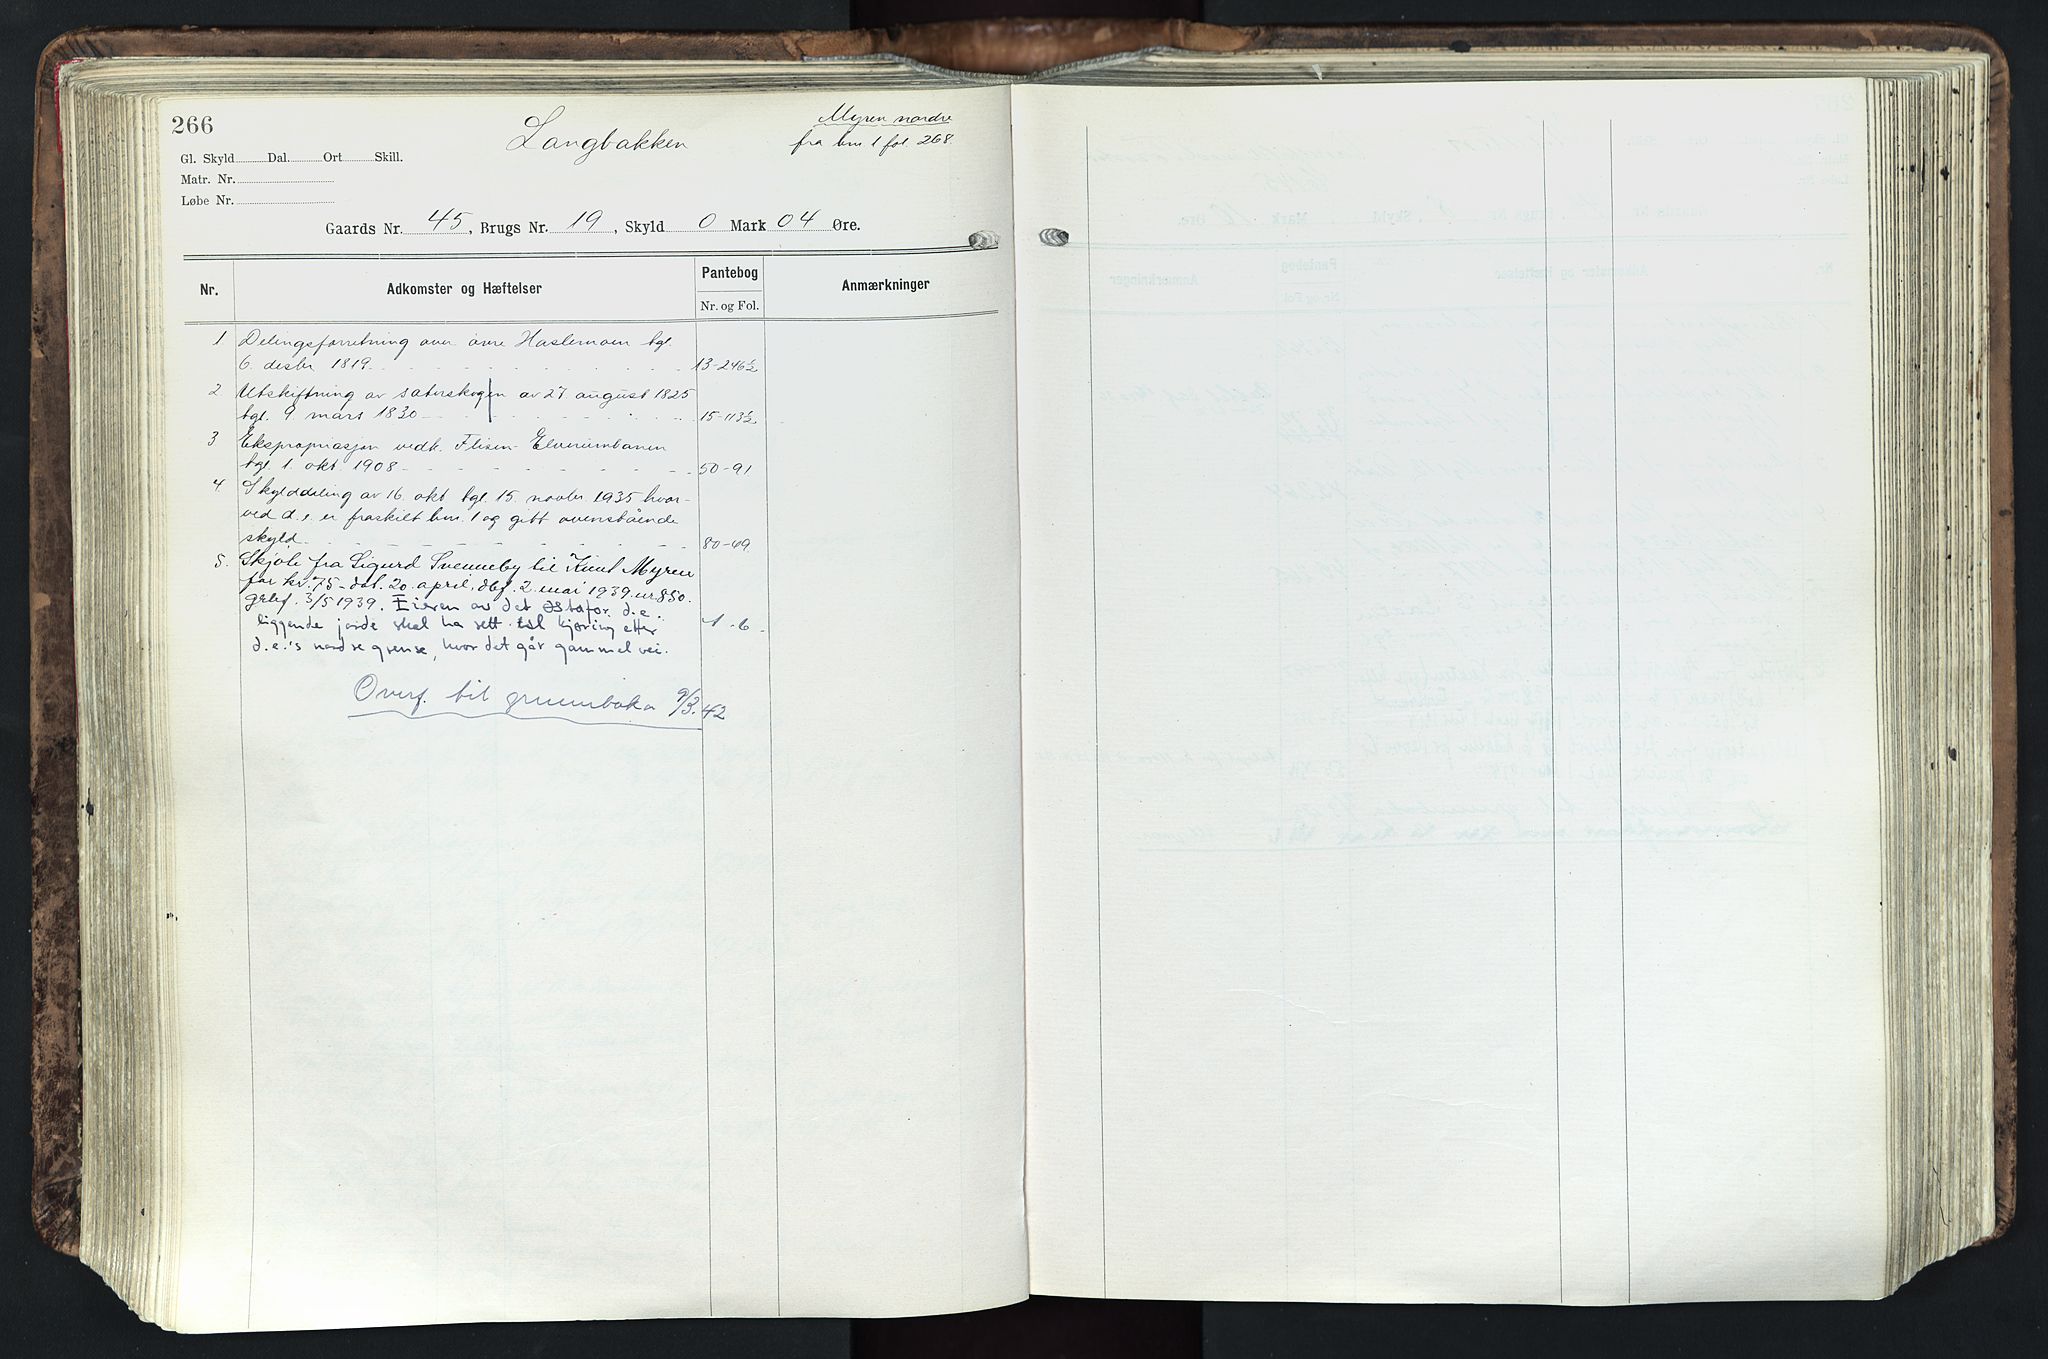 266
Langbakken
Myren nordre
fra bnr 1 fol 268
Gl. Skyld Dal. Ort Skill.
Matr. Nr.
Løbe Nr.
Gaards Nr. 45, Brugs Nr. 19, Skyld 0 Mark 04 Øre.
Nr. Adkomster og Hæftelser Pantebog Anmærkninger
Nr. og Fol.
1 Delingsforretning over øvre Haslemoen tgl.
6. desbr 1819. 13-246½
2 Utskiftning av sæterskogen av 27 august 1825
tgl. 9 mars 1830 15-113½
3 Ekspropriasjon vedk. Flisen-Elverumbanen
tgl. 1. okt. 1908 50-91
4. Skylddeling av 16. okt tgl. 15. novbr. 1935 hvor-
ved d.e. er fraskilt bnr. 1 og gitt ovenstående
skyld. 80-49
5. Skjøte fra Sigurd Svenneby til Knut Myren
for kr. 75 - dat. 20. april, dbf. 2. mai 1939. nr. 850.
grbf. 3/5 1939. Eieren av det østafor d.e.
liggende jorde skal ha rett til kjøring etter 1-6
d.e.'s nordre grense, hvor det går gammel vei.
Overf. til grunnboka 9/3.42